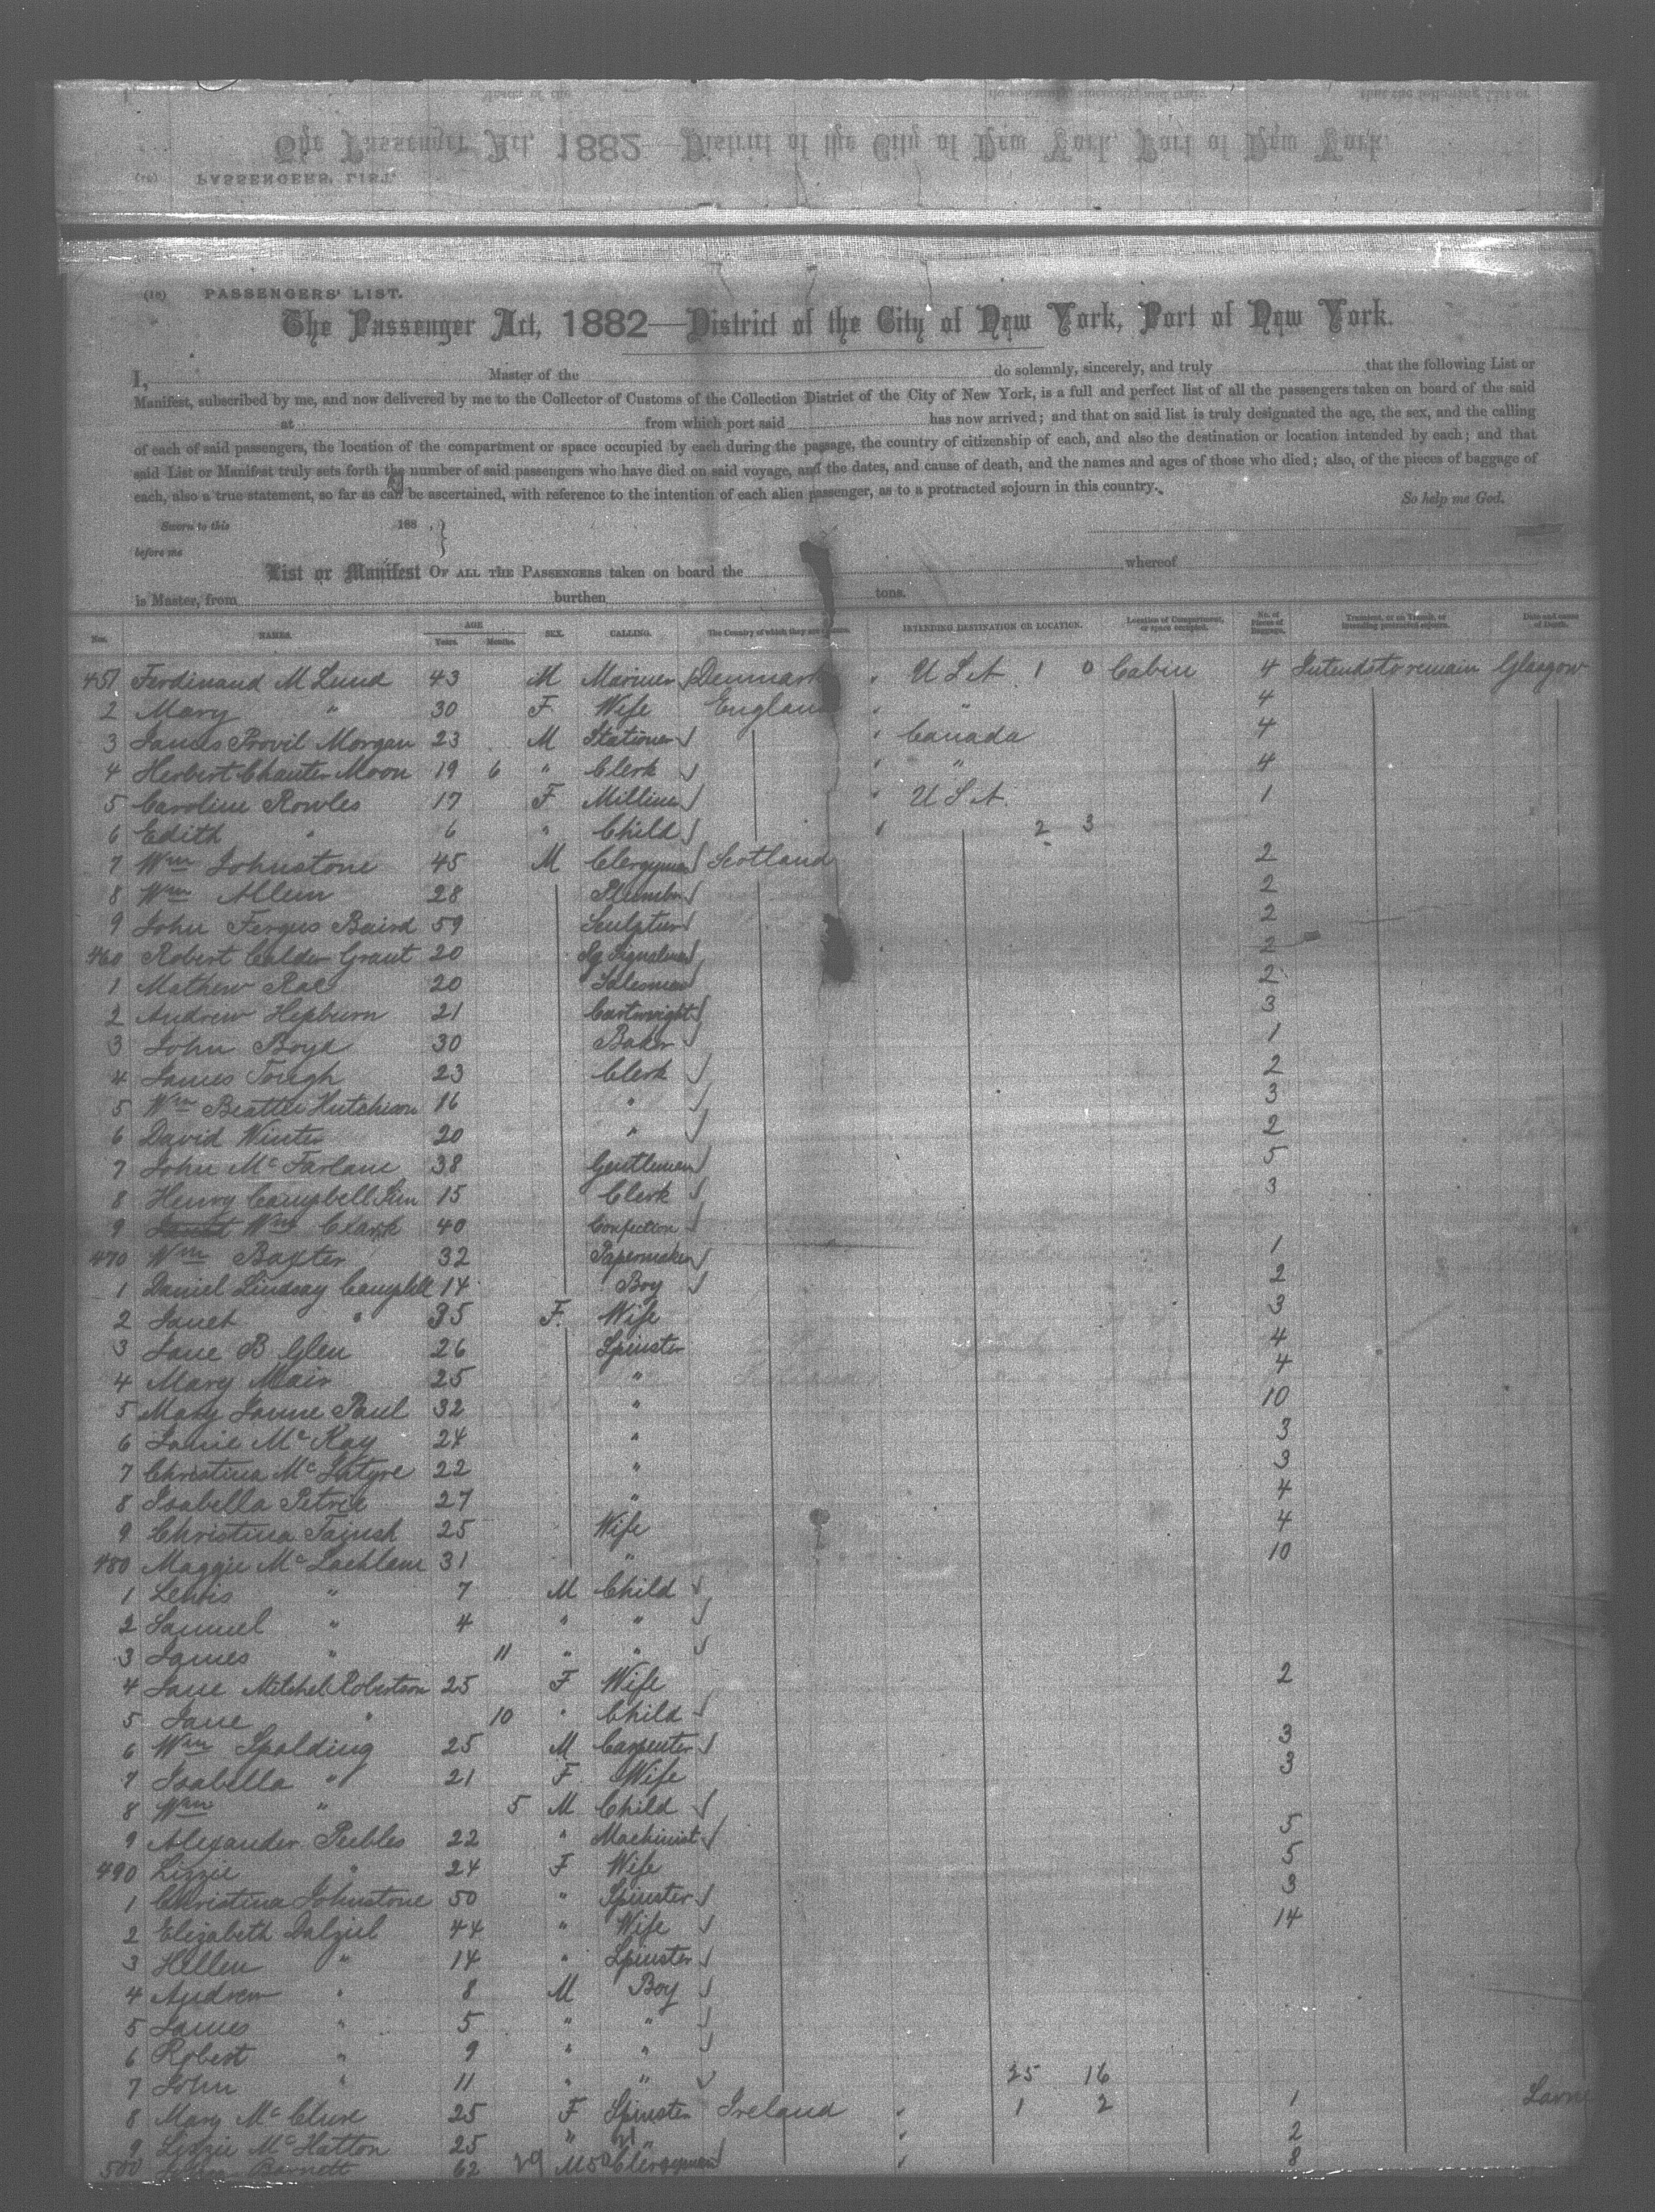 (10) PASSENGERS' LIST.
The Passenger Act, 1882—District of the City of New York, Port of New York.
I, Master of the do solemnly, sincerely, and truly that the following List or
Manifest, subscribed by me, and now delivered by me to the Collector of Customs of the Collection District of the City of New York, is a full and perfect list of all the passengers taken on board of the said
at from which port said has now arrived; and that on said list is truly designated the age, the sex, and the calling
of each of said passengers, the location of the compartment or space occupied by each during the passage, the country of citizenship of each, and also the destination or location intended by each; and that
said List or Manifest truly sets forth the number of said passengers who have died on said voyage, and the dates, and cause of death, and the names and ages of those who died; also, of the pieces of baggage of
each, also a true statement, so far as can be ascertained, with reference to the intention of each alien passenger, as to a protracted sojourn in this country.
So help me God.
Sworn to this 188 , }
before me
List or Manifest OF ALL THE PASSENGERS taken on board the whereof
is Master, from burthen tons.
Nos. NAMES. AGE Years. Months. SEX. CALLING. The Country of which they are INTENDING DESTINATION OR LOCATION. Location of Compartment, or space occupied. No. of Pieces of Baggage. Transient, or on Transit, or intending protracted sojourn. Date and cause of Death.
451 Ferdinand M Lund 43 M Mariner Denmark " U S A 1 0 Cabin 4 Intends to remain Glasgow
2 Mary " 30 F Wife England " " 4
3 James Provil Morgan 23 M Stationer " Canada 4
4 Herbert Chanter Moon 19 6 " Clerk " " 4
5 Caroline Rowles 17 F Milliner " U S A 1
6 Edith " 6 " Child " 2 3
7 Wm Johnstone 45 M Clergyman Scotland 2
8 Wm Allen 28 Plumber 2
9 John Fergus Baird 59 Sculpture 2
460 Robert Calder Grant 20 Ry Signalman 2
1 Mathew Rae 20 Salesman 2
2 Andrew Hepburn 21 Cartwright 3
3 John Boyd 30 Baker 1
4 James Tough 23 Clerk 2
5 Wm Beattie Hutchison 16 " 3
6 David Winter 20 " 2
7 John McFarlane 38 Gentleman 5
8 Henry Campbell 15 Clerk 3
9 Wm Clark 40 Confection
470 Wm Baxter 32 Papermaker 1
1 Daniel Lindsay Campbell 14 Boy 2
2 Janet " 35 F. Wife 3
3 Jane B Glen 26 Spinster 4
4 Mary Mair 25 " 4
5 Mary Jane Paul 32 " 10
6 Janie McKay 24 " 3
7 Christina McIntyre 22 " 3
8 Isabella Petrie 27 " 4
9 Christina Tainsh 25 Wife 4
480 Maggie McLachlane 31 " 10
1 Lewis " 7 M Child
2 Samuel " 4 " "
3 James " 11 " "
4 Jane Mitchel Robertson 25 F Wife 2
5 Jane " 10 " Child
6 Wm Spalding 25 M Carpenter 3
7 Isabella " 21 F Wife 3
8 Wm " 5 M Child
9 Alexander Peebles 22 " Machinist 5
490 Lizzie " 24 F Wife 5
1 Christina Johnstone 50 " Spinster 3
2 Elizabeth Dalziel 44 " Wife 14
3 Hellen " 14 " Spinster
4 Andrew " 8 M Boy
5 James " 5 " "
6 Robert " 9 " "
7 John " 11 " " 25 16
8 Mary McClure 25 F Spinster Ireland " 1 2 1
9 Lizzie McHatton 25 " " " 2
500 Barnett 62 M Clergyman " 8